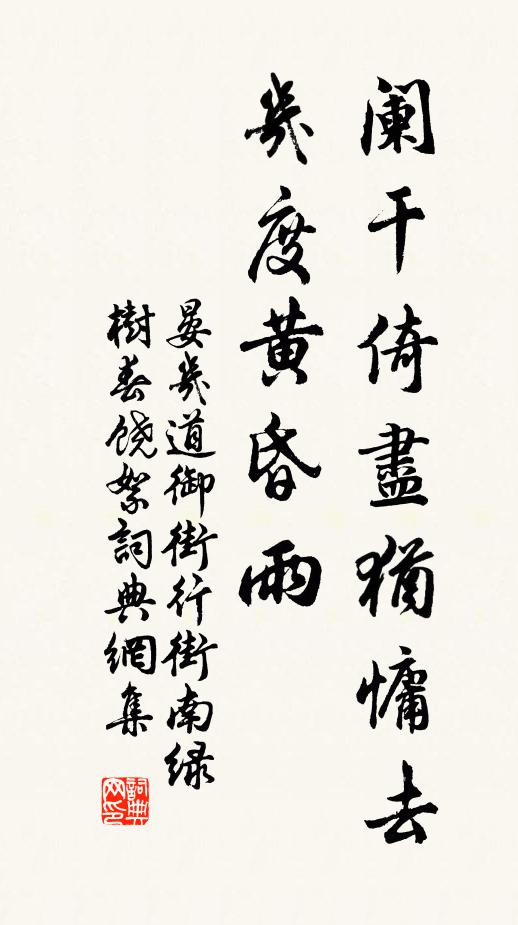 阑干倚盡猶慵去
幾度黄昏雨
晏幾道御街行街南绿
樹春饶絮詞典網集
詞典
网印